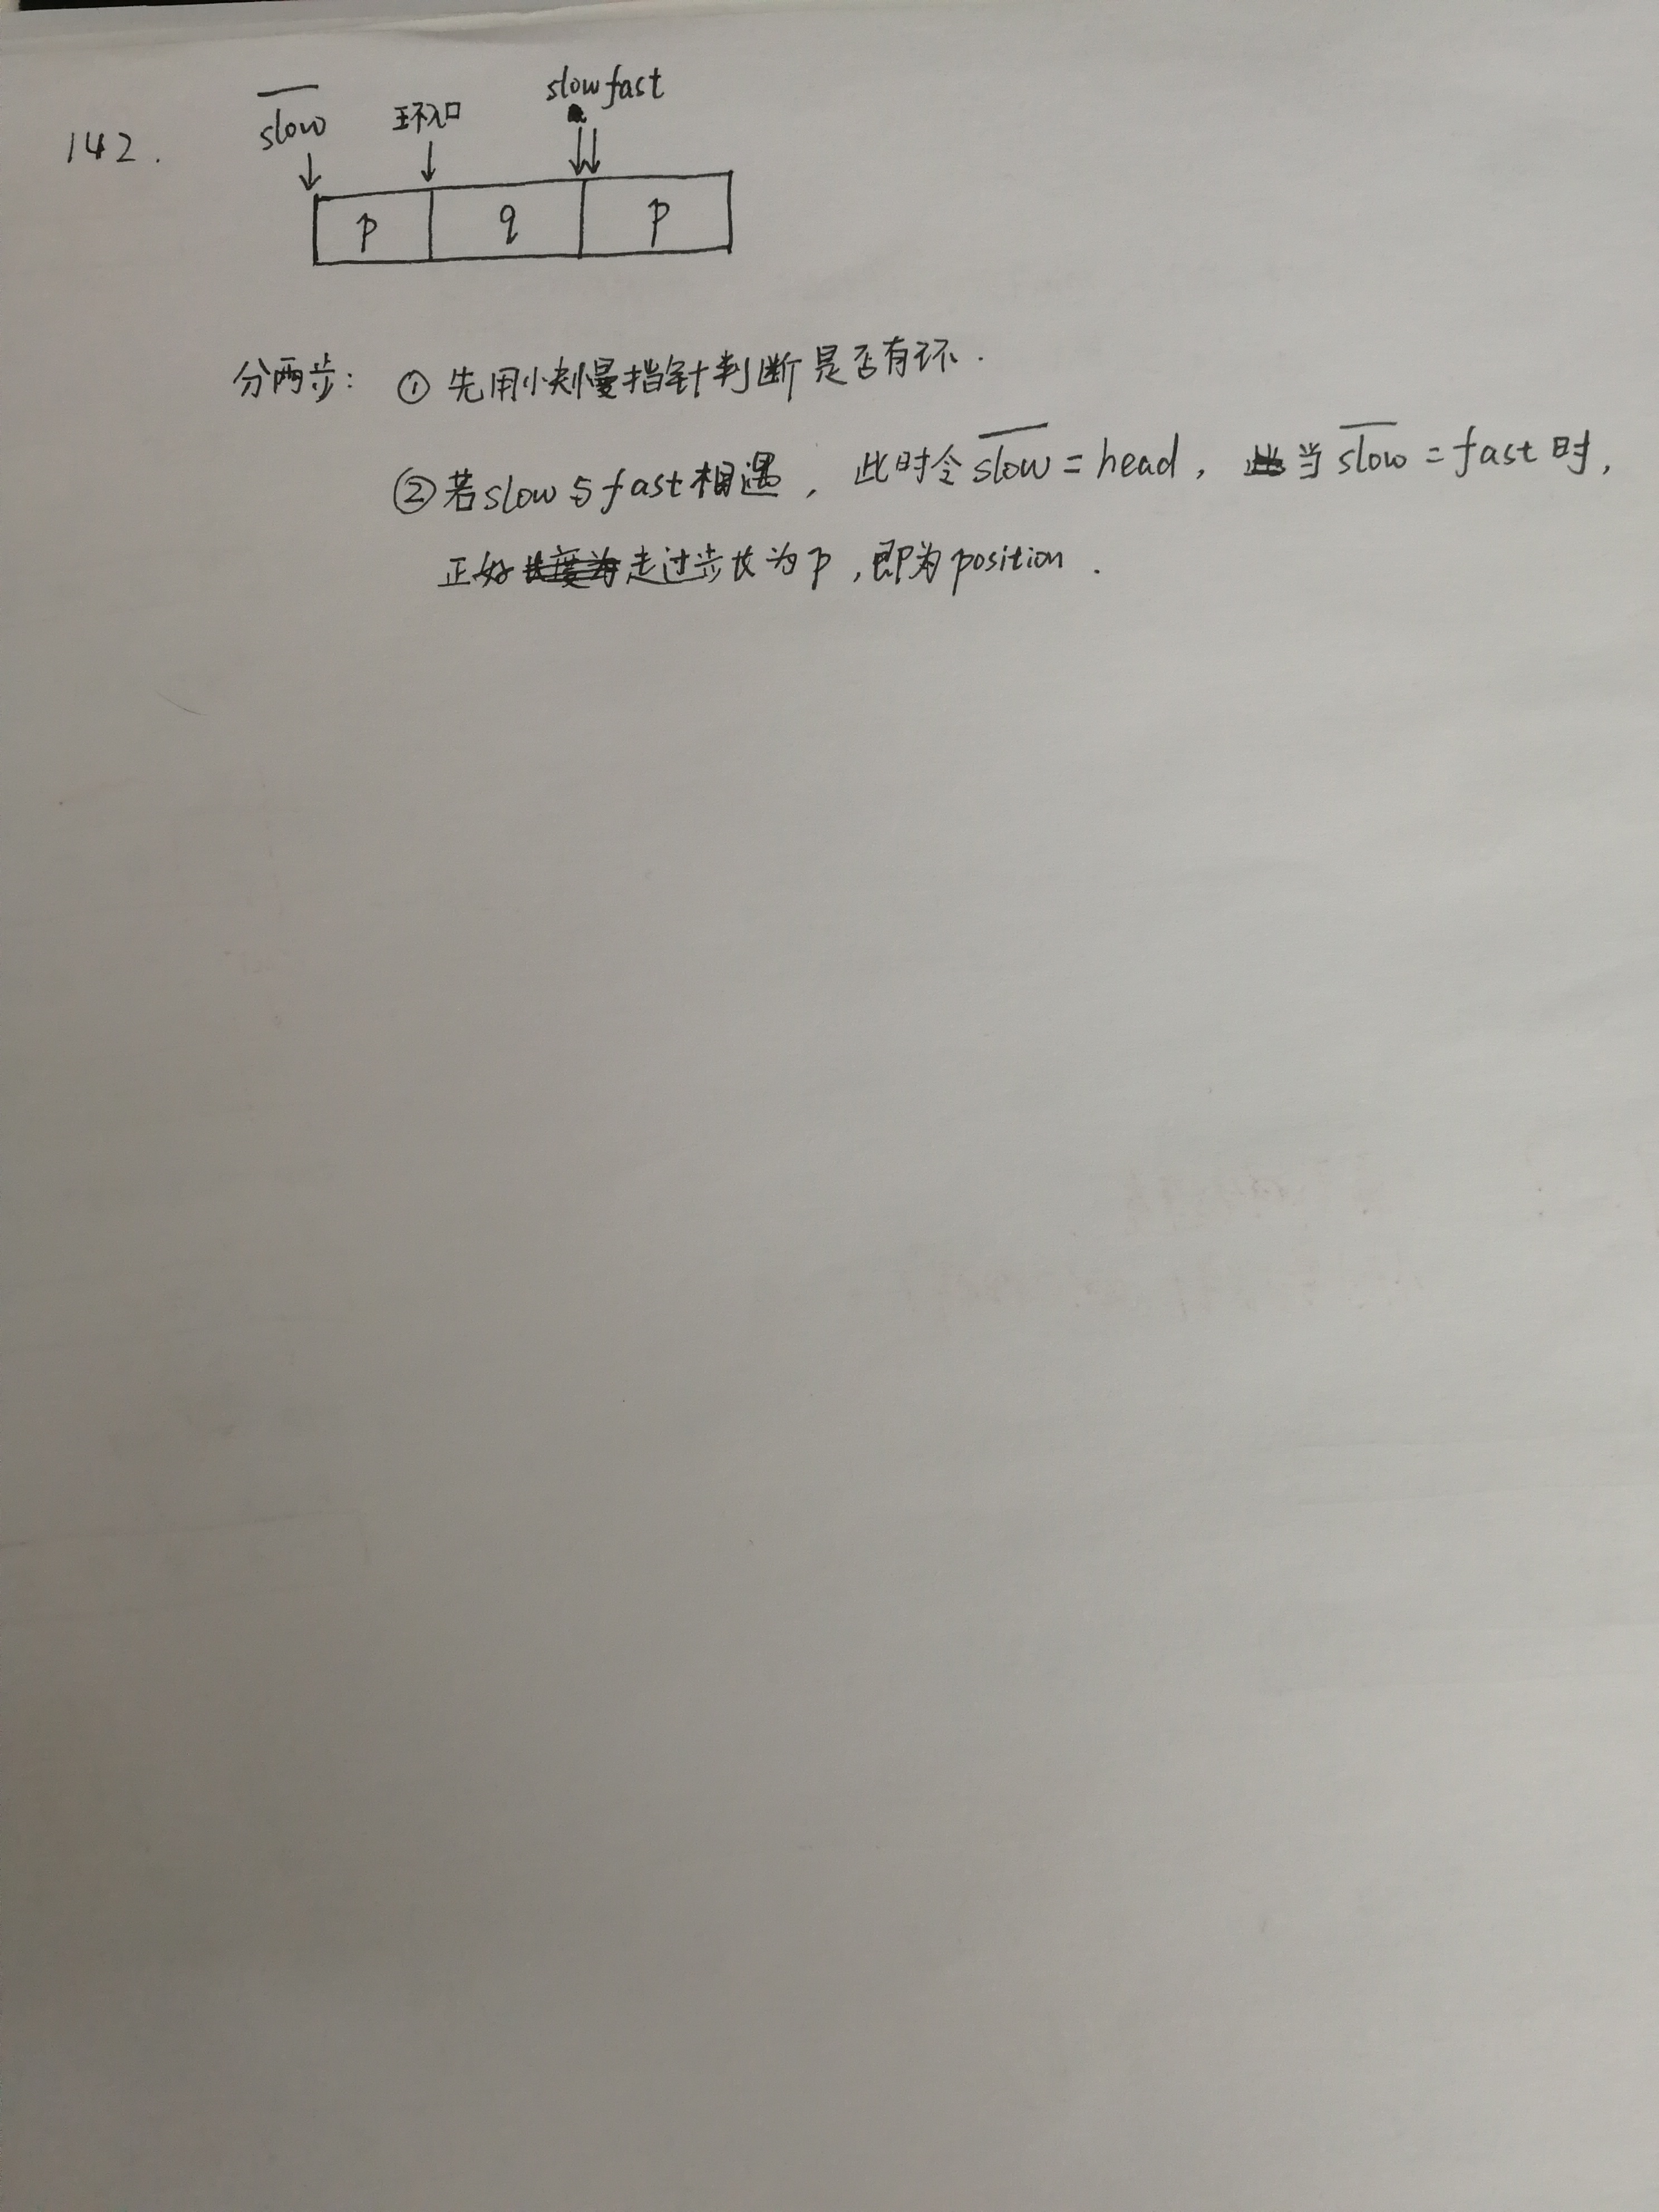 slow fast
142. slow 环入口
p q p
分两步: ① 先用快慢指针判断是否有环.
② 若slow与fast相遇, 此时令slow = head, 当slow = fast时,
正好走过步长为p, 即为position.